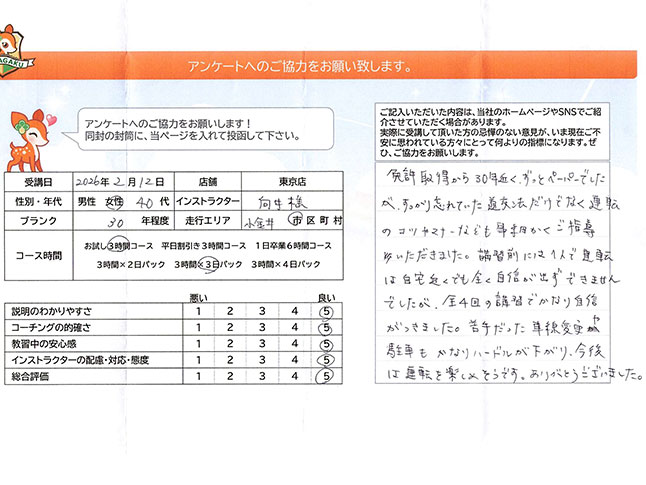 AGAKU
アンケートへのご協力をお願い致します。
アンケートへのご協力をお願いします!
同封の封筒に、当ページを入れて投函して下さい。
ご記入いただいた内容は、当社のホームページやSNSでご紹介させていただく場合があります。
実際に受講して頂いた方の忌憚のない意見が、いま現在ご不安に思われている方々にとって何よりの指標になります。ぜひ、ご協力をお願いします。
受講日 2026年2月12日 店舗 東京店
性別・年代 男性 女性 40代 インストラクター 向井様
ブランク 30 年程度 走行エリア 小金井 市区町村
コース時間 お試し3時間コース 平日割引き3時間コース 1日卒業6時間コース
3時間×2日パック 3時間×3日パック 3時間×4日パック
悪い 良い
説明のわかりやすさ 1 2 3 4 5
コーチングの的確さ 1 2 3 4 5
教習中の安心感 1 2 3 4 5
インストラクターの配慮・対応・態度 1 2 3 4 5
総合評価 1 2 3 4 5
免許取得から30年近く、ずっとペーパーでした
が、すっかり忘れていた道交法だけでなく運転
のコツやマナーなども事細かくご指導
いただきました。講習前には1人で運転
は自宅近くでも全く自信が出ずできません
でしたが、全4回の講習でかなり自信
がつきました。苦手だった車線変更や
駐車もかなりハードルが下がり、今後
は運転を楽しめそうです。ありがとうございました。